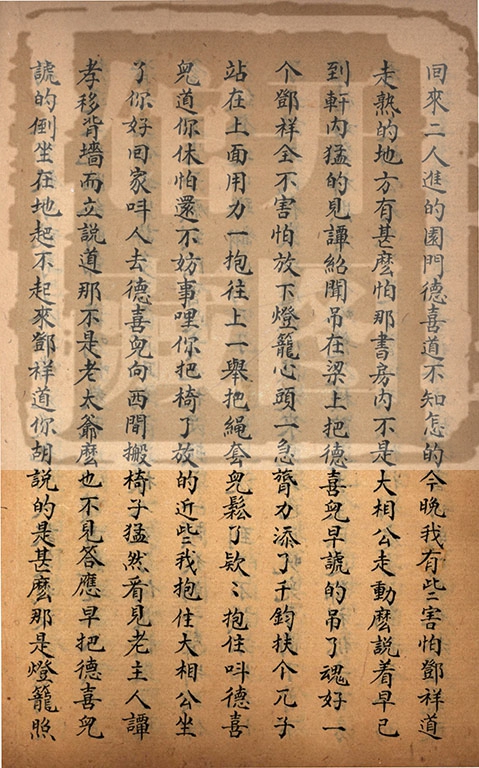 回來二人進的園門德喜道不知怎的今晚我有些二害怕鄧祥道
走熟的地方有甚麽怕那書房內不是大相公走動麽説着早已
到軒內猛的見譚紹聞吊在梁上把德喜兒早諕的吊了魂好一
个鄧祥全不害怕放下燈籠心頭一急膂力添了千鈞扶个兀子
站在上面用力一抱往上一舉把繩套兒鬆了欵〻抱住呌德喜
兒道你休怕還不妨事哩你把椅了放的近些二我抱住大相公坐
了你好回家呌人去德喜兒向西間搬椅子猛然看見老主人譚
孝移背墻而立説道那不是老太爺麽也不見答應早把德喜兒
諕的倒坐在地起不起來鄧祥道你胡説的是甚麽那是燈籠照